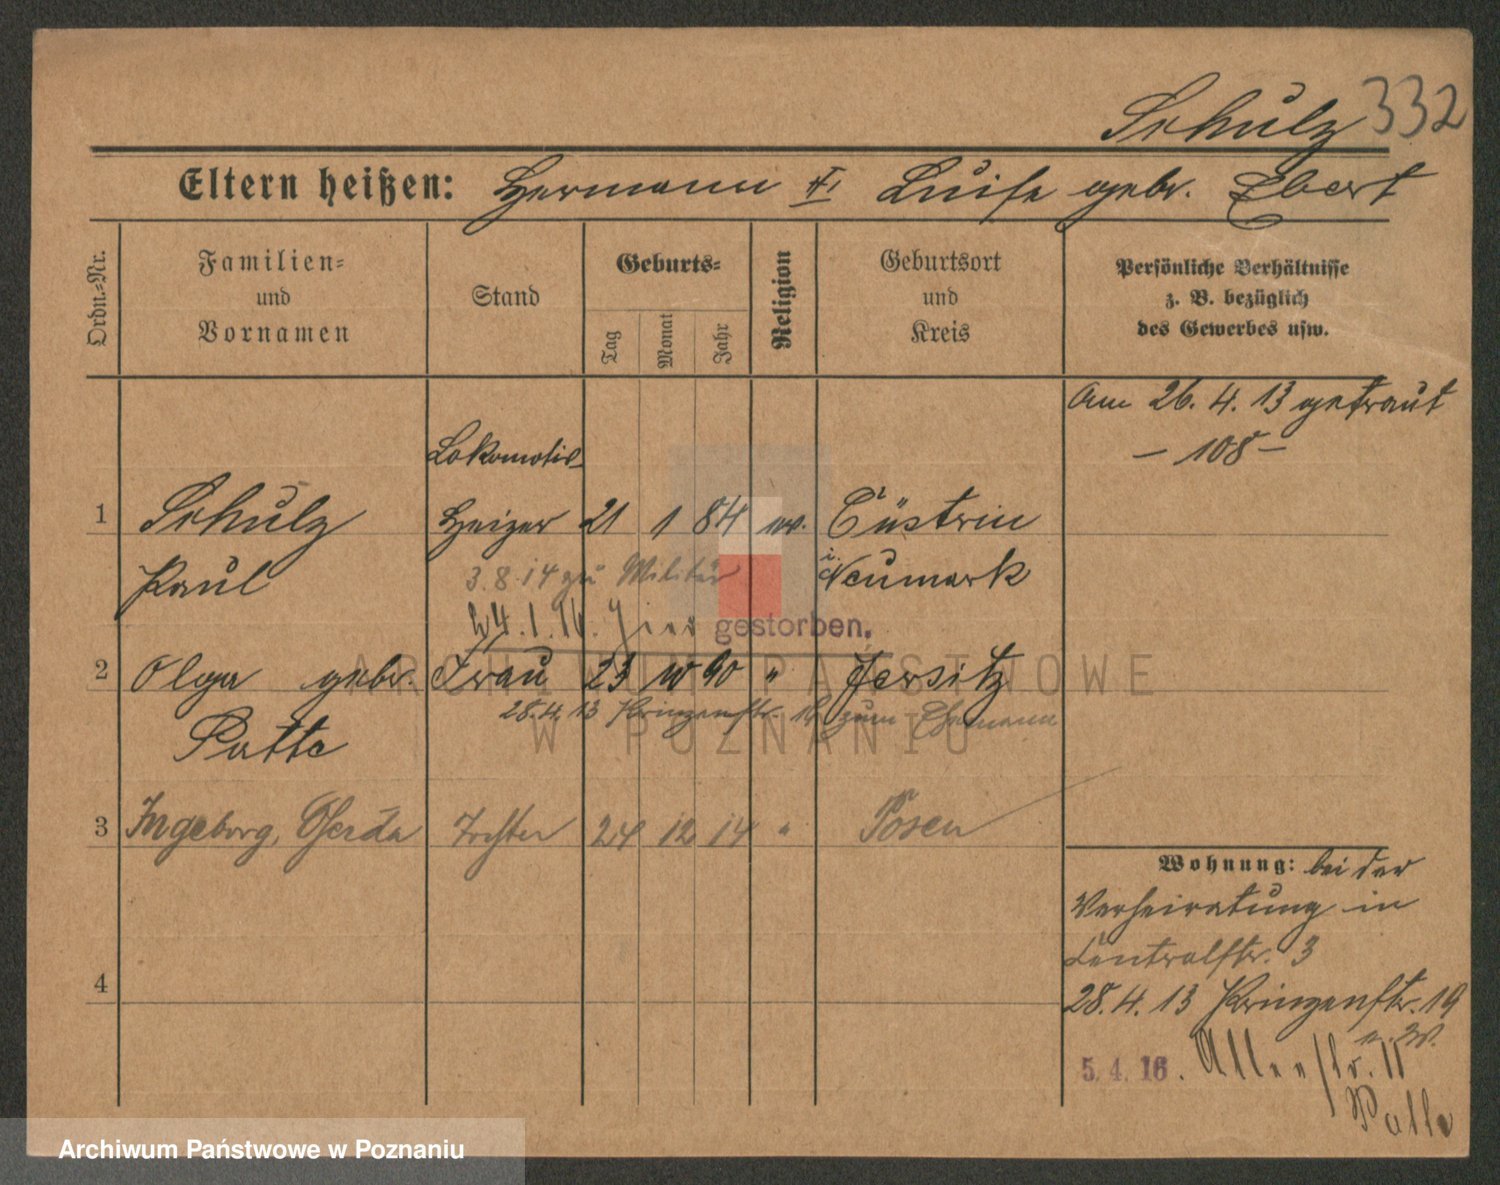 Schulz 332
Eltern heißen: Hermann u. Luise gebr. Ebert
Ordn.-Nr.
Familien-
und
Vornamen
Stand
Geburts-
Tag
Monat
Jahr
Religion
Geburtsort
und
Kreis
Persönliche Verhältnisse
z. B. bezüglich
des Gewerbes usw.
Am 26. 4. 13 getraut
– 108 –
Lokomotiv-
1 Schulz Heizer 21 1 84 ev. Cüstrin
Paul i. Neumark
3. 8. 14 zu Militär
24. 1. 16. hier gestorben.
2 Olga gebr. Frau 23 10 90 " Jersitz
Patte
28. 4. 13 Prinzenstr. 19 zum Ehemann
3 Ingeborg, Gerda Tochter 24 12 14 " Posen
4
Wohnung: bei der
Verheiratung in
Centralstr. 3
28. 4. 13 Prinzenstr. 19
5. 4. 16.
Patte
ARCHIWUM PAŃSTWOWE
W POZNANIU
Archiwum Państwowe w Poznaniu